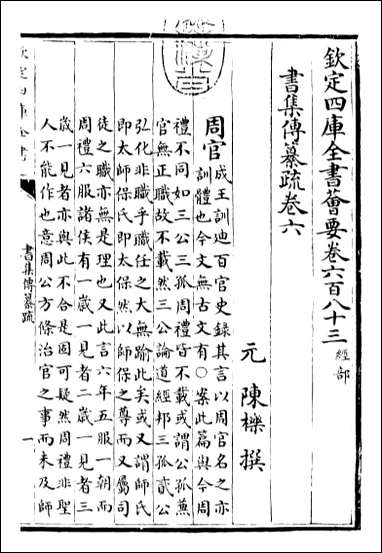 欽定四庫全書薈要卷六百八十三 經部
書集傳纂疏卷六
元 陳櫟 撰
周官 成王訓迪百官史錄其言以周官名之亦
訓體也今文無古文有○案此篇與今周
禮不同如三公三孤周禮皆不載或謂公孤兼
官無正職故不載然三公論道經邦三孤貳公
弘化非職乎職任之大無踰此矣或又謂師氏
即太師保氏即太保然以師保之尊而又屬司
徒之職亦無是理也又此言六年五服一朝而
周禮六服諸侯有一歲一見者二歲一見者三
歲一見者亦與此不合是固可疑然周禮非聖
人不能作也意周公方條治官之事而未及師
欽定四庫全書
書集傳纂疏
一